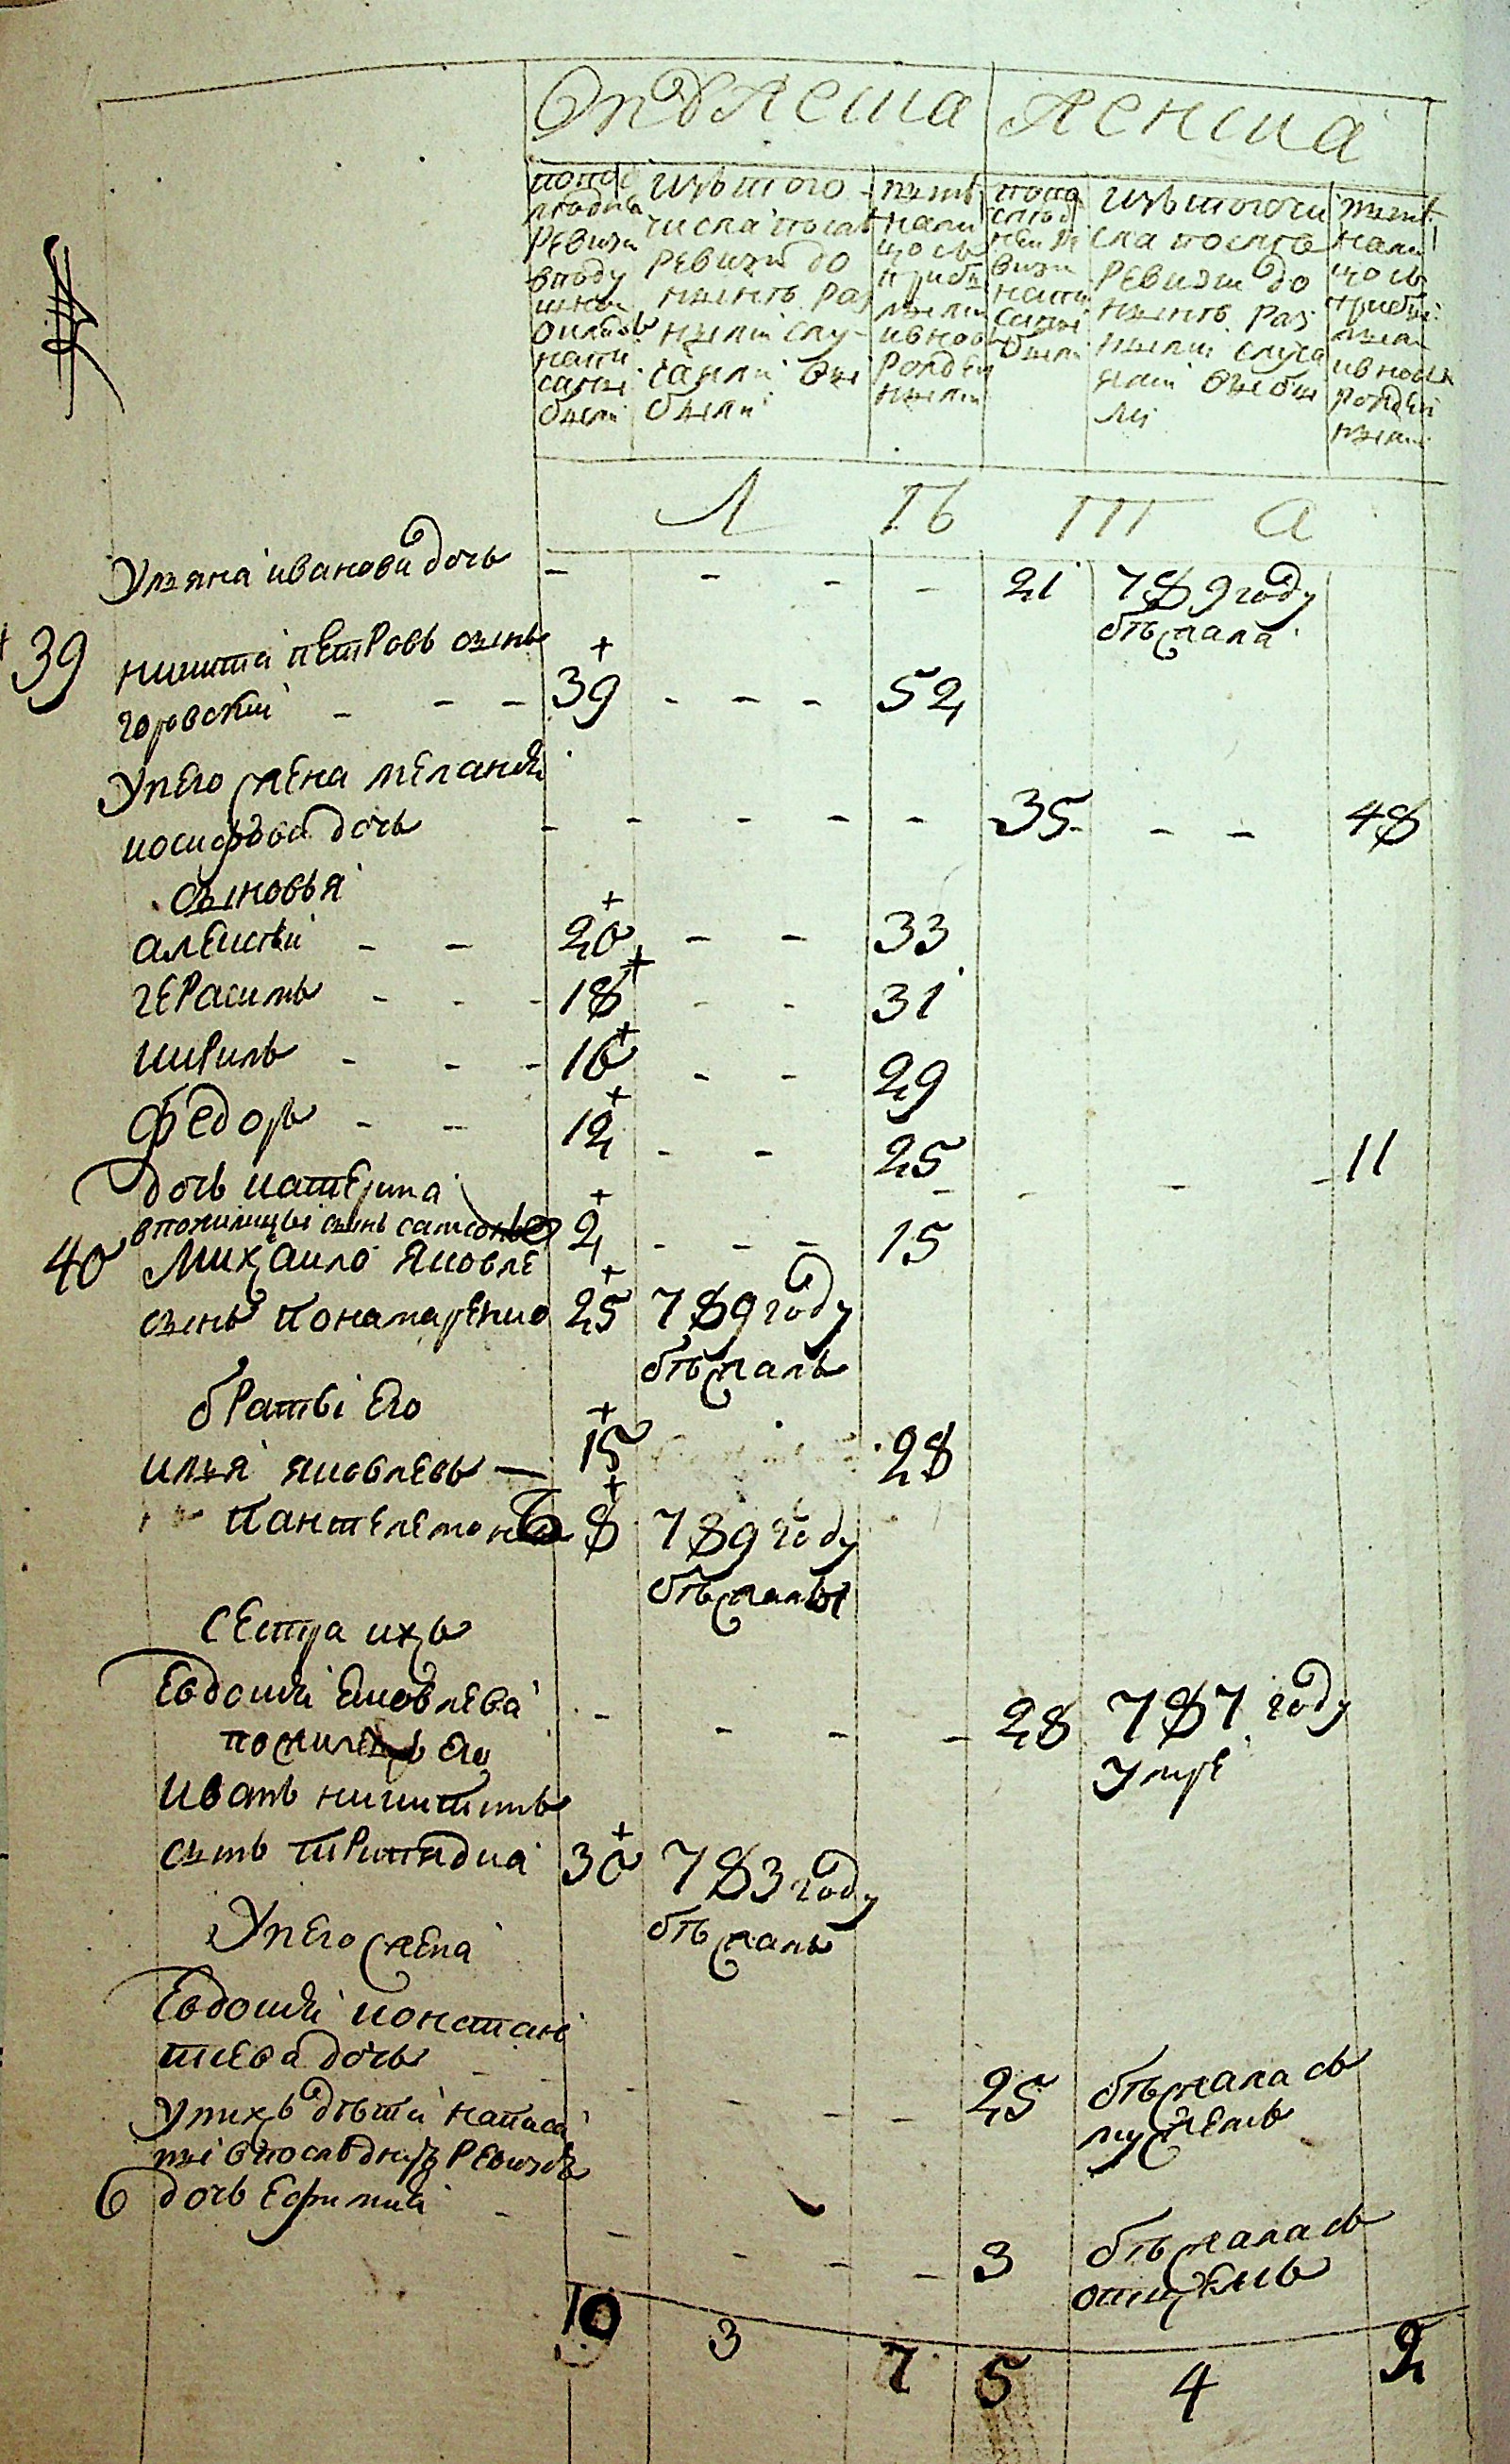 мужеска женска
попос леднеи ревизи вподу шном окладе написаны были
изътого числа после ревизи до ныне разными случаями выбыли
ныне налицо съ прибылыми ивново рожденными
попоследнеи ревизи написаны были
изътогочисла после ревизи до ныне разными случаями выбыли
ныне налицо съ прибылыми ивново рожденными
Л Ѣ Т А
Ульяна иванова дочь - - - - 21 789 году
бѣжала
39 никита петровъ сынъ
горовскій - - - 39 - - - 52
Унего жена меланія
иосифова дочь - - - - - 35 - - 48
сыновья
алексѣи - - 20 - - 33
герасимъ - - - 18 - - 31
кирилъ - - - 16 - - 29
федоръ - - 12 - - 25
дочь катерина - - - - 11
впожилцы сынъ самсонъ 2 - - - 15
40 Михаило яковле
сынъ понамаренко 25 789 году
бѣжалъ
братьі его
илья яковлевъ — 15 28
пантелемонъ 8 789 году
бѣжалъ
сестра ихъ
Евдокія яковлева - - - - 28 787 году
умре
пожилецъ его
иванъ никитинъ
сынъ 30 783 году
бѣжалъ
Унего жена
Евдокія констан
тиева дочь - - - - 25 бѣжала съ
мужемъ
Унихъ дѣти написа
ны впослѣдней ревизіи
дочь ефимия - - - - 3 бѣжала съ
отцемъ
10 3 7 5 4 2